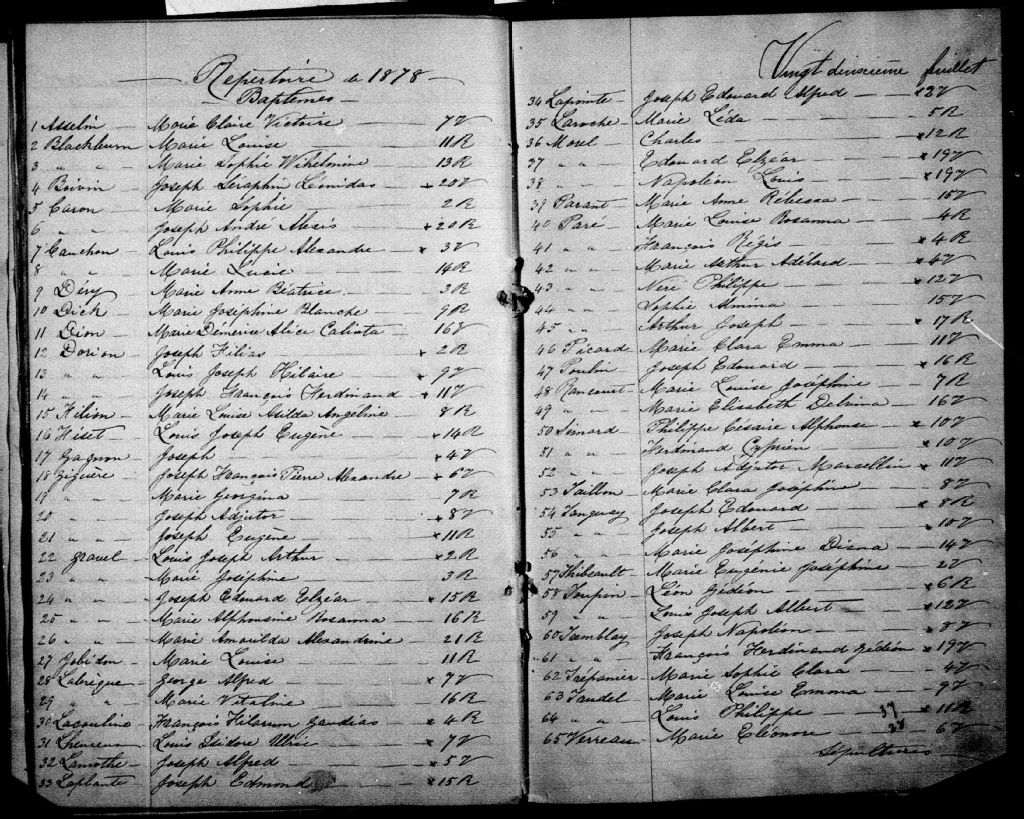 Repertoire de 1878
Baptemes
1 Asselin Marie Claire Victoire 7V
2 Blackburn Marie Louise 11R
3 " " Marie Sophie Wilhelmine 13R
4 Boivin Joseph Séraphin Léonidas x 20V
5 Caron Marie Sophie 2R
6 " " Joseph André Alexis x 20R
7 Cauchon Louis Philippe Alexandre x 3V
8 " " Marie Lucie 14R
9 Déry Marie Anne Béatrice 3R
10 Dick Marie Joséphine Blanche 9R
11 Dion Marie Démerise Alice Calixta 16V
12 Dorion Joseph Filias x 2R
13 " " Louis Joseph Hilaire x 9V
14 " " Joseph François Ferdinand x 11V
15 Filion Marie Louise Asilda Angeline 8R
16 Fiset Louis Joseph Eugène x 14R
17 Gagnon Joseph x 4V
18 Giguère Joseph François Pierre Alexandre x 6V
19 " " Marie Georgina 7R
20 " " Joseph Adjutor x 8V
21 " " Joseph Eugène x 11R
22 Gravel Louis Joseph Arthur x 2R
23 " " Marie Joséphine 3R
24 " " Joseph Edouard Elzéar x 15R
25 " " Marie Alphonsine Rosanna 16R
26 " " Marie Amarilda Alexandrine 21R
27 Gobidon Marie Louise 11R
28 Labrèque George Alfred x 7V
29 " " Marie Vitaline 16R
30 Lacouline François Hilarium Gaudias x 4R
31 Lheureux Louis Isidore Ulric x 7V
32 Lamothe Joseph Alfred x 5V
33 Laplante Joseph Edmond x 15R
Vingt deuxième feuillet
34 Lapointe Joseph Edouard Alfred x 2V
35 Laroche Marie Léda 5R
36 Morel Charles x 12R
37 " " Edouard Elzéar x 19V
38 " " Napoléon Louis x 19V
39 Parant Marie Anne Rébecca 15V
40 Paré Marie Louise Rosanna 4R
41 " " François Régis x 4R
42 " " Marie Arthur Adélard x 4V
43 " " Néré Philippe x 12V
44 " " Sophie Almina 15V
45 " " Arthur Joseph x 17R
46 Picard Marie Clara Emma 11V
47 Poulin Joseph Edouard x 16R
48 Rancourt Marie Louise Joséphine 7R
49 " " Marie Elisabeth Delima 16V
50 Simard Philippe Césaire Alphonse x 10V
51 " " Ferdinand Cyprien x 10V
52 " " Joseph Adjutor Marcellin x 11V
53 Taillon Marie Clara Joséphine 8V
54 Tanguay Joseph Edouard x 8R
55 " " Joseph Albert x 10V
56 " " Marie Joséphine Diana 14V
57 Thibeault Marie Eugénie Joséphine 2V
58 Toupin Léon Gédéon x 6R
59 " " Louis Joseph Albert x 12V
60 Tremblay Joseph Napoléon x 8V
61 " " François Ferdinand Gédéon x 19V
62 Trépanier Marie Sophie Clara 4V
63 Trudel Marie Louise Emma 9V
64 " " Louis Philippe x 11R
65 Verreau Marie Eléonore 6V
37
28
Sépultures